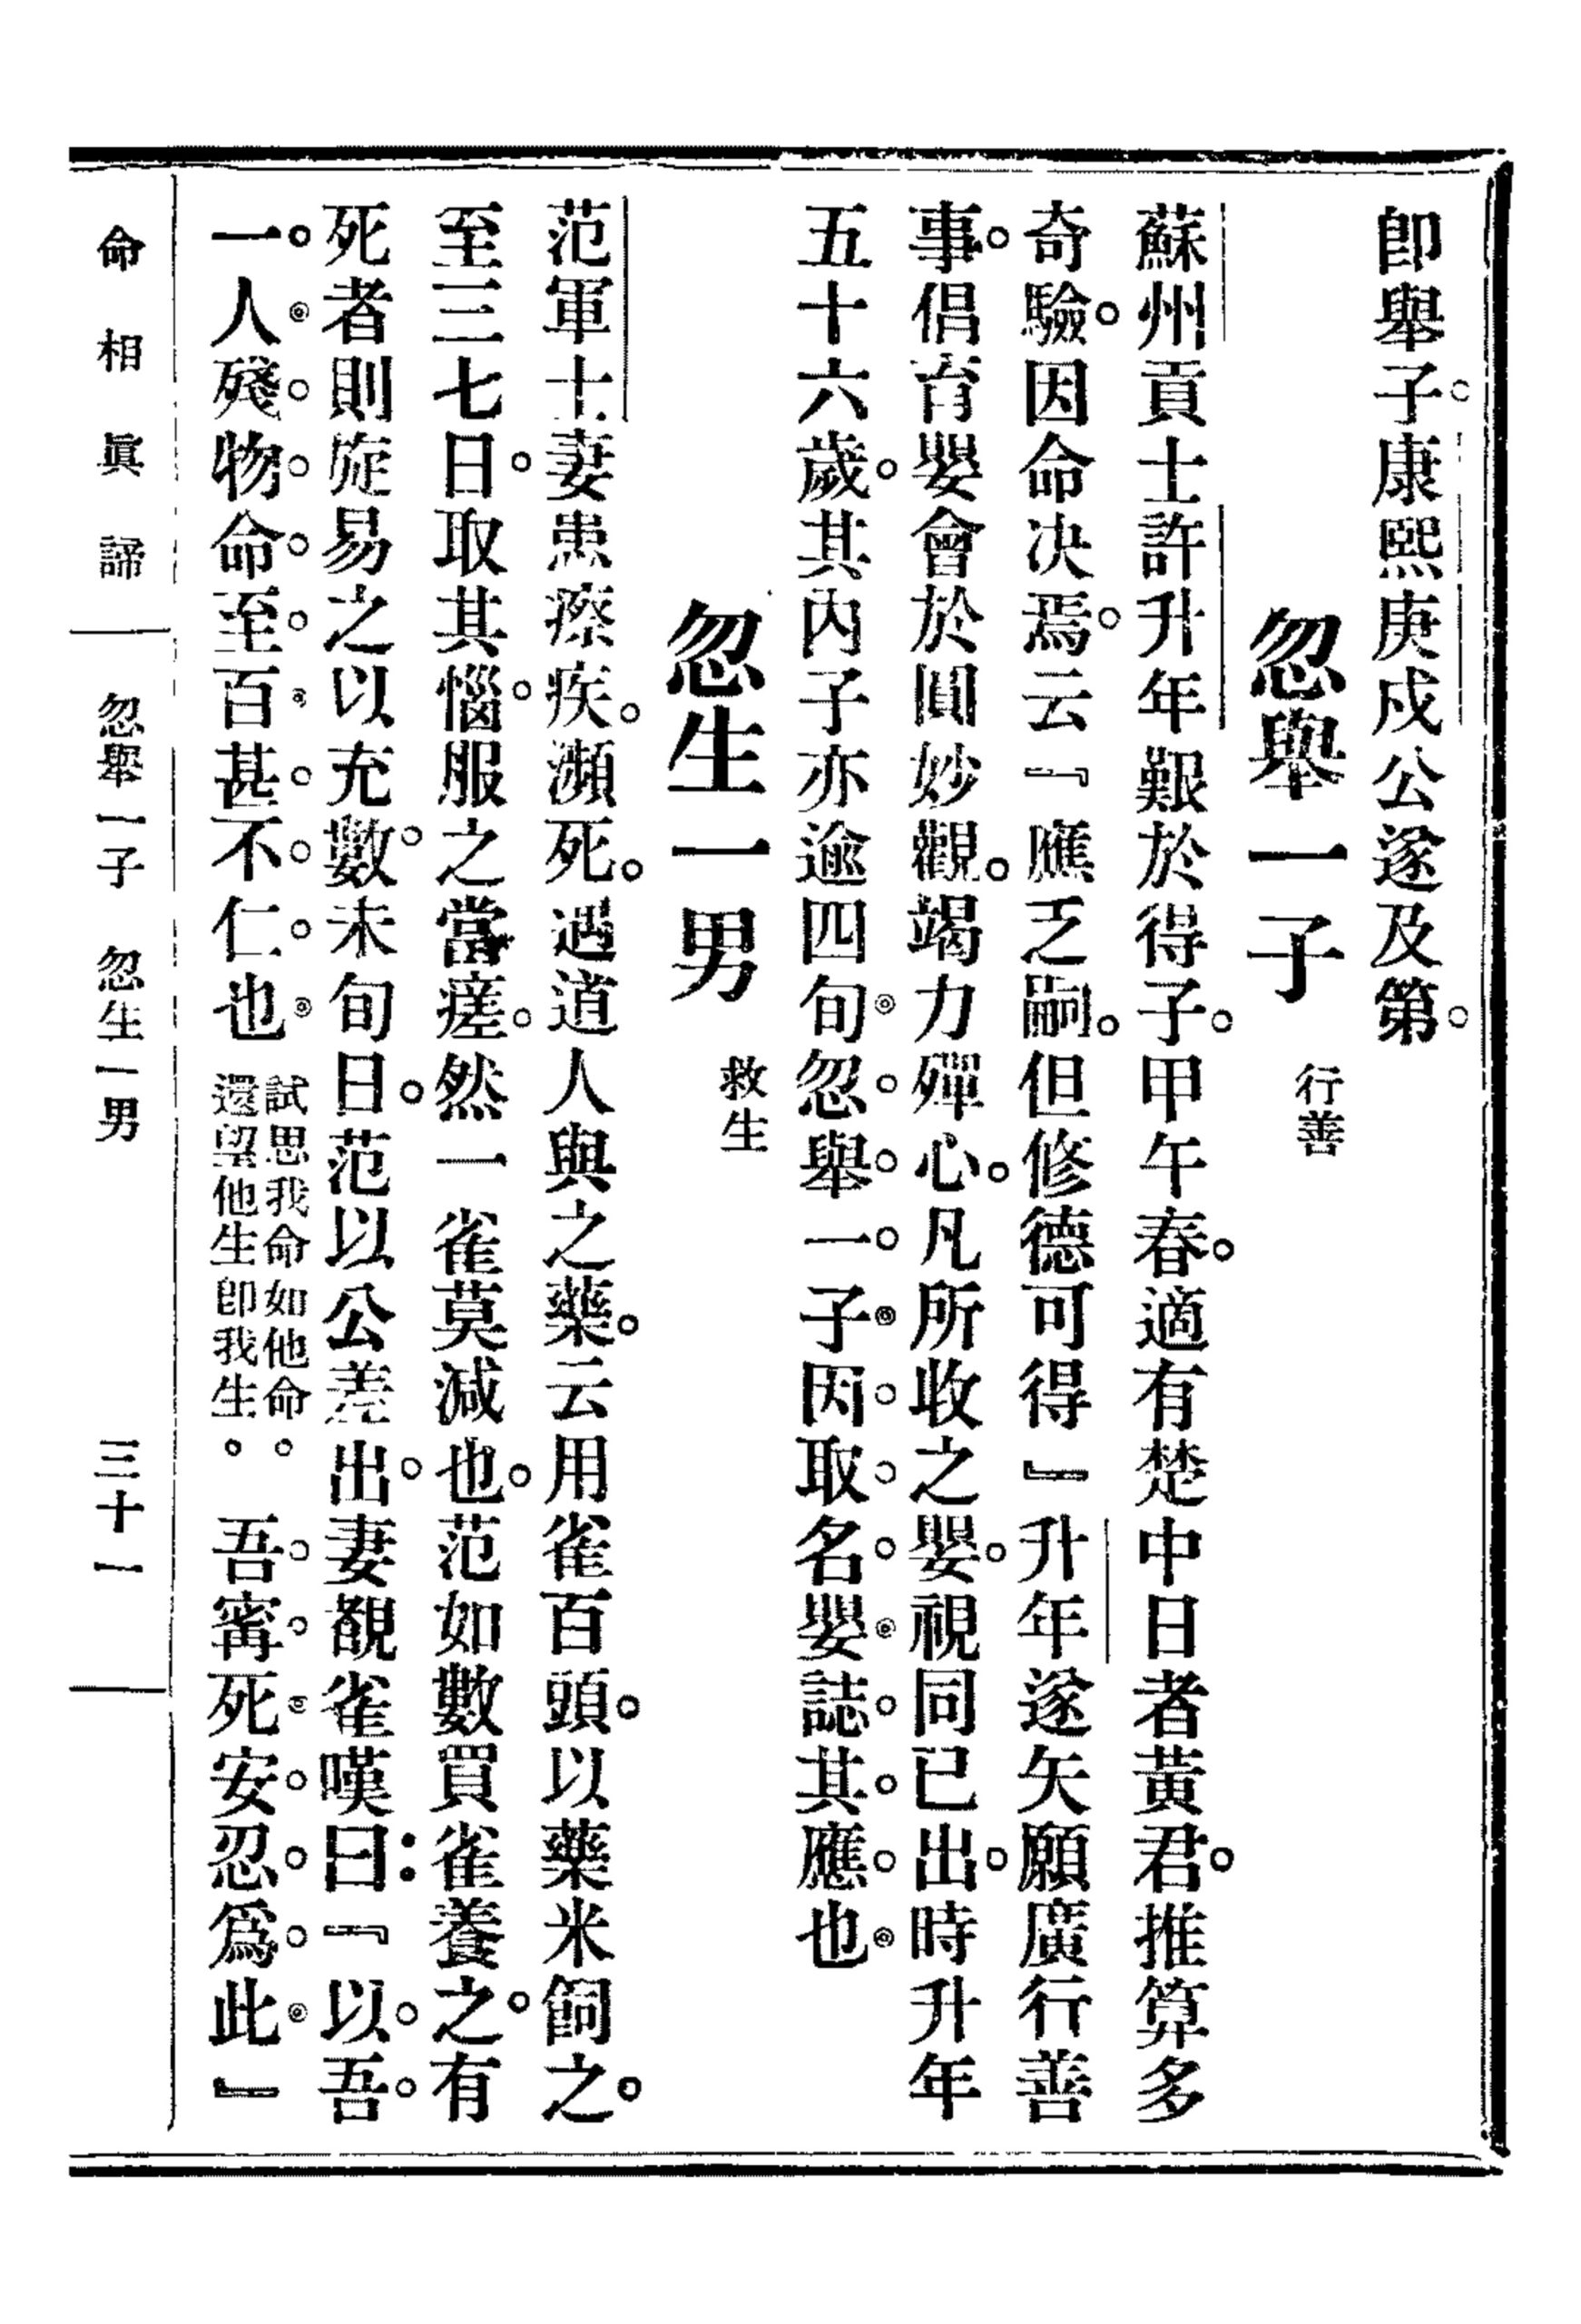 卽舉子。康熙庚戍公遂及第。
忽舉一子 行善
蘇州貢士許升年艱於得子。甲午春。適有楚中日者黃君。推算多
奇驗。因命决焉。云『應乏嗣。但修德可得』升年遂矢願廣行善
事。倡育嬰會於圓妙觀。竭力殫心。凡所收之嬰。視同已出。時升年
五十六歲。其內子亦逾四旬忽舉一子因取名嬰誌其應也
忽生一男 救生
范軍士妻患瘵疾。瀕死。遇道人與之藥。云用雀百頭。以藥米飼之。
至三七日。取其惱。服之當瘥。然一雀莫減也。范如數買雀養之。有
死者則旋易之以充數。未旬日。范以公差出。妻覩雀嘆曰：『以吾
一人殘物命至百甚不仁也 試思我命如他命。還望他生卽我生。 吾寗死安忍爲此』
命相眞諦 忽舉一子 忽生一男 三十一